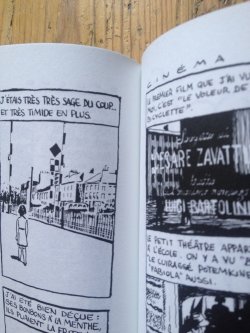 J'ÉTAIS TRÈS TRÈS SAGE DU COUP...
ET TRÈS TIMIDE EN PLUS.
J'AI ÉTÉ BIEN DÉÇUE:
BONBONS À LA MENTHE,
ILS PUAIENT LA
CINÉMA
PREMIER FILM QUE J'AI VU
C'EST "LE VOLEUR DE
CYCLETTE".
CESARE ZAVATTI
LUIGI BARTOLINI
LE PETIT THÉÂTRE APPAR
À L'ÉCOLE. ON Y A VU
LE CUIRASSÉ POTEMKINE
"FABIOLA" AUSSI.